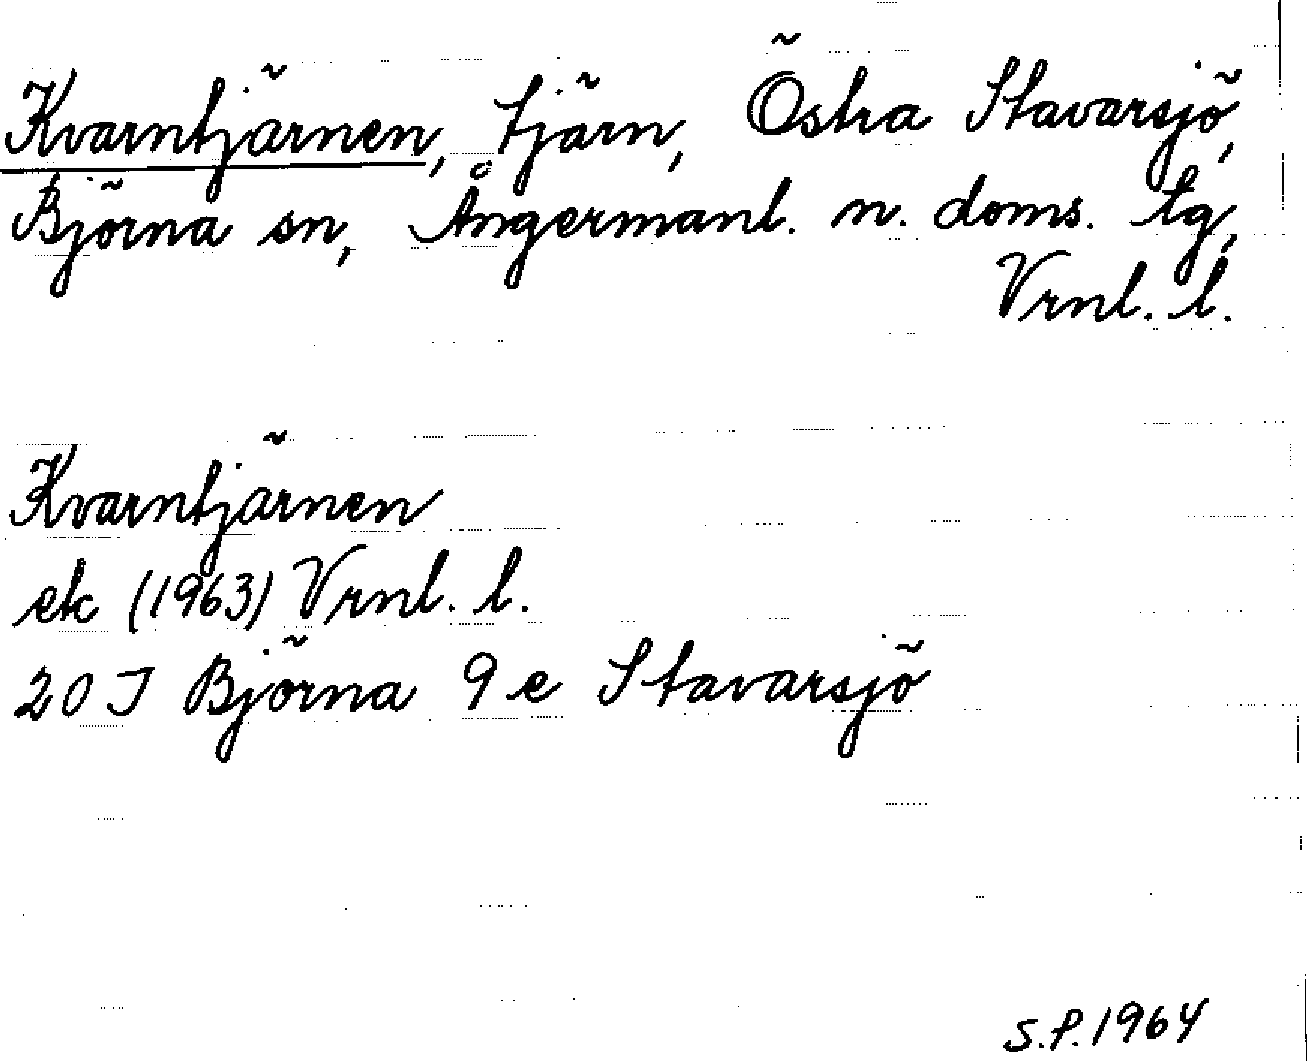 Kvarntjärnen, tjärn, Östra Stavarsjö,
Björna sn, Ångermanl. n. doms. tg,
Vrnl. l.
Kvarntjärnen
ek (1963) Vrnl. l.
20 J Björna 9 e Stavarsjö
S.P. 1964